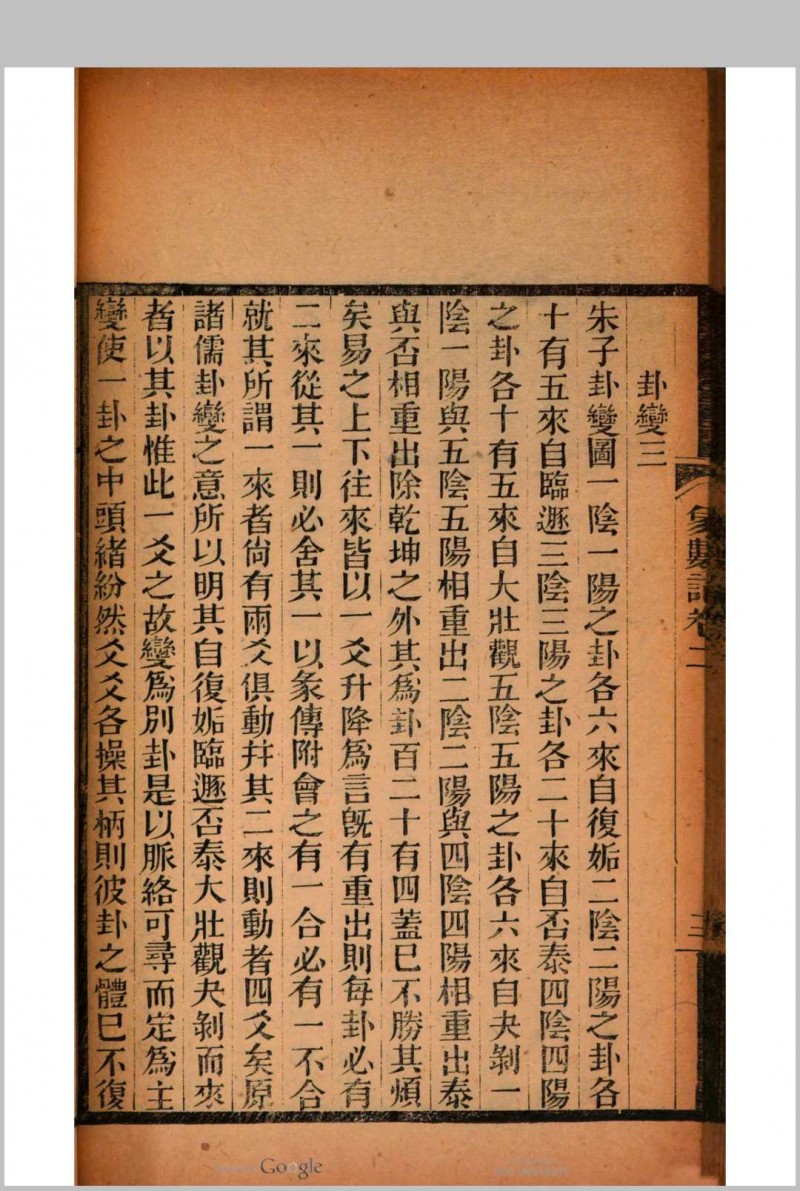 象數論卷二
三
卦變三
朱子卦變圖一陰一陽之卦各六來自復姤二陰二陽之卦各
十有五來自臨遯三陰三陽之卦各二十來自否泰四陰四陽
之卦各十有五來自大壯觀五陰五陽之卦各六來自夬剝一
陰一陽與五陰五陽相重出二陰二陽與四陰四陽相重出泰
與否相重出除乾坤之外其爲卦百二十有四蓋已不勝其煩
矣易之上下往來皆以一爻升降爲言旣有重出則每卦必有
二來從其一則必舍其一以彖傳附會之有一合必有一不合
就其所謂一來者尙有兩爻俱動幷其二來則動者四爻矣原
諸儒卦變之意所以明其自復姤臨遯否泰大壯觀夬剝而來
者以其卦惟此一爻之故變爲別卦是以脈絡可尋而定爲主
變使一卦之中頭緒紛然爻爻各操其柄則彼卦之體已不復
Google